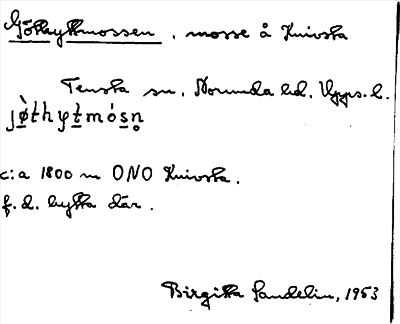 Göthyttmossen, mosse å Knivsta
Tensta sn. Norunda hd. Upps. l.
jø̀thyt̠mós̠n̥
c:a 1800 m ONO Knivsta.
f.d. hytta där.
Birgitta Sandelin, 1953